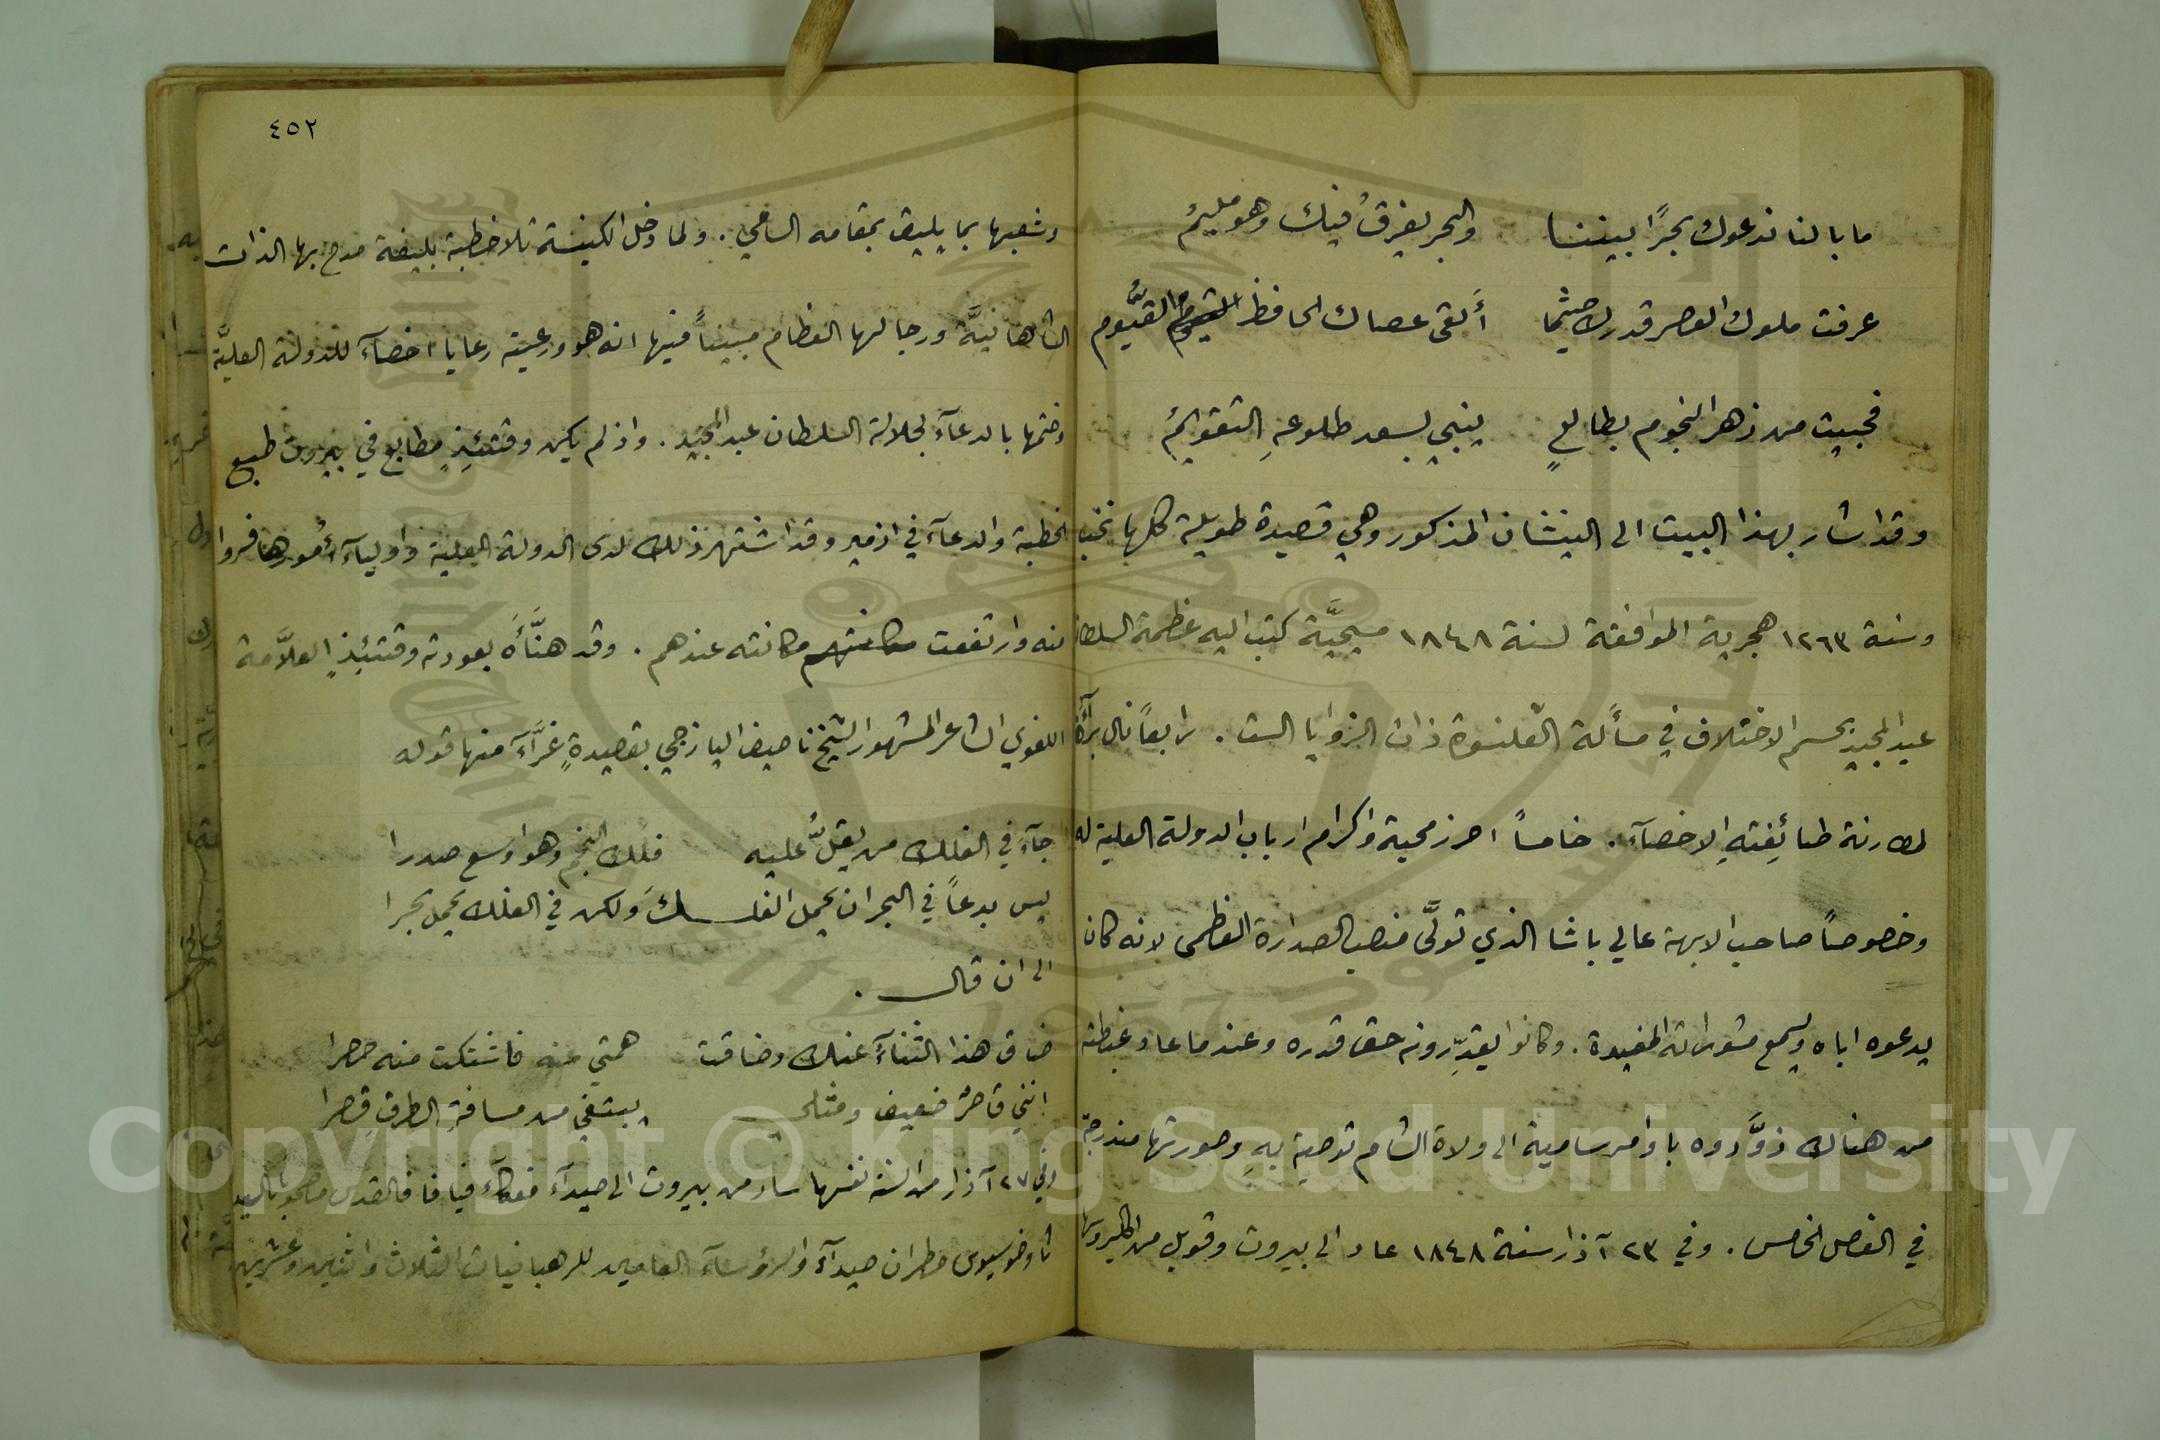 ما بالنا ندعوك بحرًا بيننا والبحر يغرقُ فيك وهو مليمُ
عرفت ملوك العصر قدرك حيثما ألقى عصاك الحافظ القيُّوم
فحييت من زهر النجوم بطالعٍ ينبي بسعد طلوعهِ التقويمُ
وقد اشار بهذا البيت الى النيشان المذكور وهي قصيدة طويلة كلها نخب
وسنة ١٢٦٣ هجرية الموافقة لسنة ١٨٤٨ مسيحيَّة كتب اليه عظمة السلطان
عبد المجيد بحسم الاختلاف في مسألة القلنسوة ذات الزوايا الست . رابعاً نال براآة
لمطارنة طائفتهِ الاخصآء . خامساً احرز محبة واكرام ارباب الدولة العلية له
وخصوصاً صاحب الابهة عالي باشا الذي تولَّى منصب الصدارة العظمى لانه كان
يدعوه اباه ويسمع مشوراته المفيدة . وكانوا يقدِّرونه حق قدره وعندما عاد غبطته
من هناك زوَّدوه باوامر سامية الى ولاة الشام توصية بهِ وصورتها مندرجة
في الفصل الخامس . وفي ٢٣ آذار سنة ١٨٤٨ عاد الى بيروت وقوبل من اكليروسها
٤٥٢
وشعبها بما يليق بمقامه السامي . ولما دخل الكنيسة تلا خطبة بليغة مدح بها الذات
الشاهانيَّة ورجالها العظام مبيناً فيها انه هو ورعيته رعايا اخصآء للدولة العليَّة
وختمها بالدعآء لجلالة السلطان عبد المجيد . واذ لم يكن وقتئذٍ مطابع في بيروت طبع
الخطبة والدعآء في ازمير وقد اشتهر ذلك لدى الدولة العلية واوليآء أمورها فسروا
منه وارتفعت مكانته عندهم . وقد هنَّأَهُ بعودته وقتئذٍ العلَّامة
اللغوي الشاعر المشهور الشيخ ناصيف اليازجي بقصيدةٍ غرَّآء منها قوله
جآء في الفلك من يقلُّ عليه فلك النجم وهو اوسع صدرا
ليس بدعاً في البحر ان يحمل الفلـــك ولكن في الفلك يحمل بحرا
الى ان قال .
ضاق هذا الثنآء عنك وضاقت همتي عنه فاشتكت منه حصرا
انني قاصرٌ ضعيف ومثلي يبتغي من مسافة الطرق قصرا
وفي ٢٧ آذار من السنة نفسها سار من بيروت الى صيدآء فعكآء فيافا فالقدس مصحوباً بالسيد
ثاوضوسيوس مطران صيدآء والرؤسآء العامين للرهبانيات الثلاث واثنين وعشرين